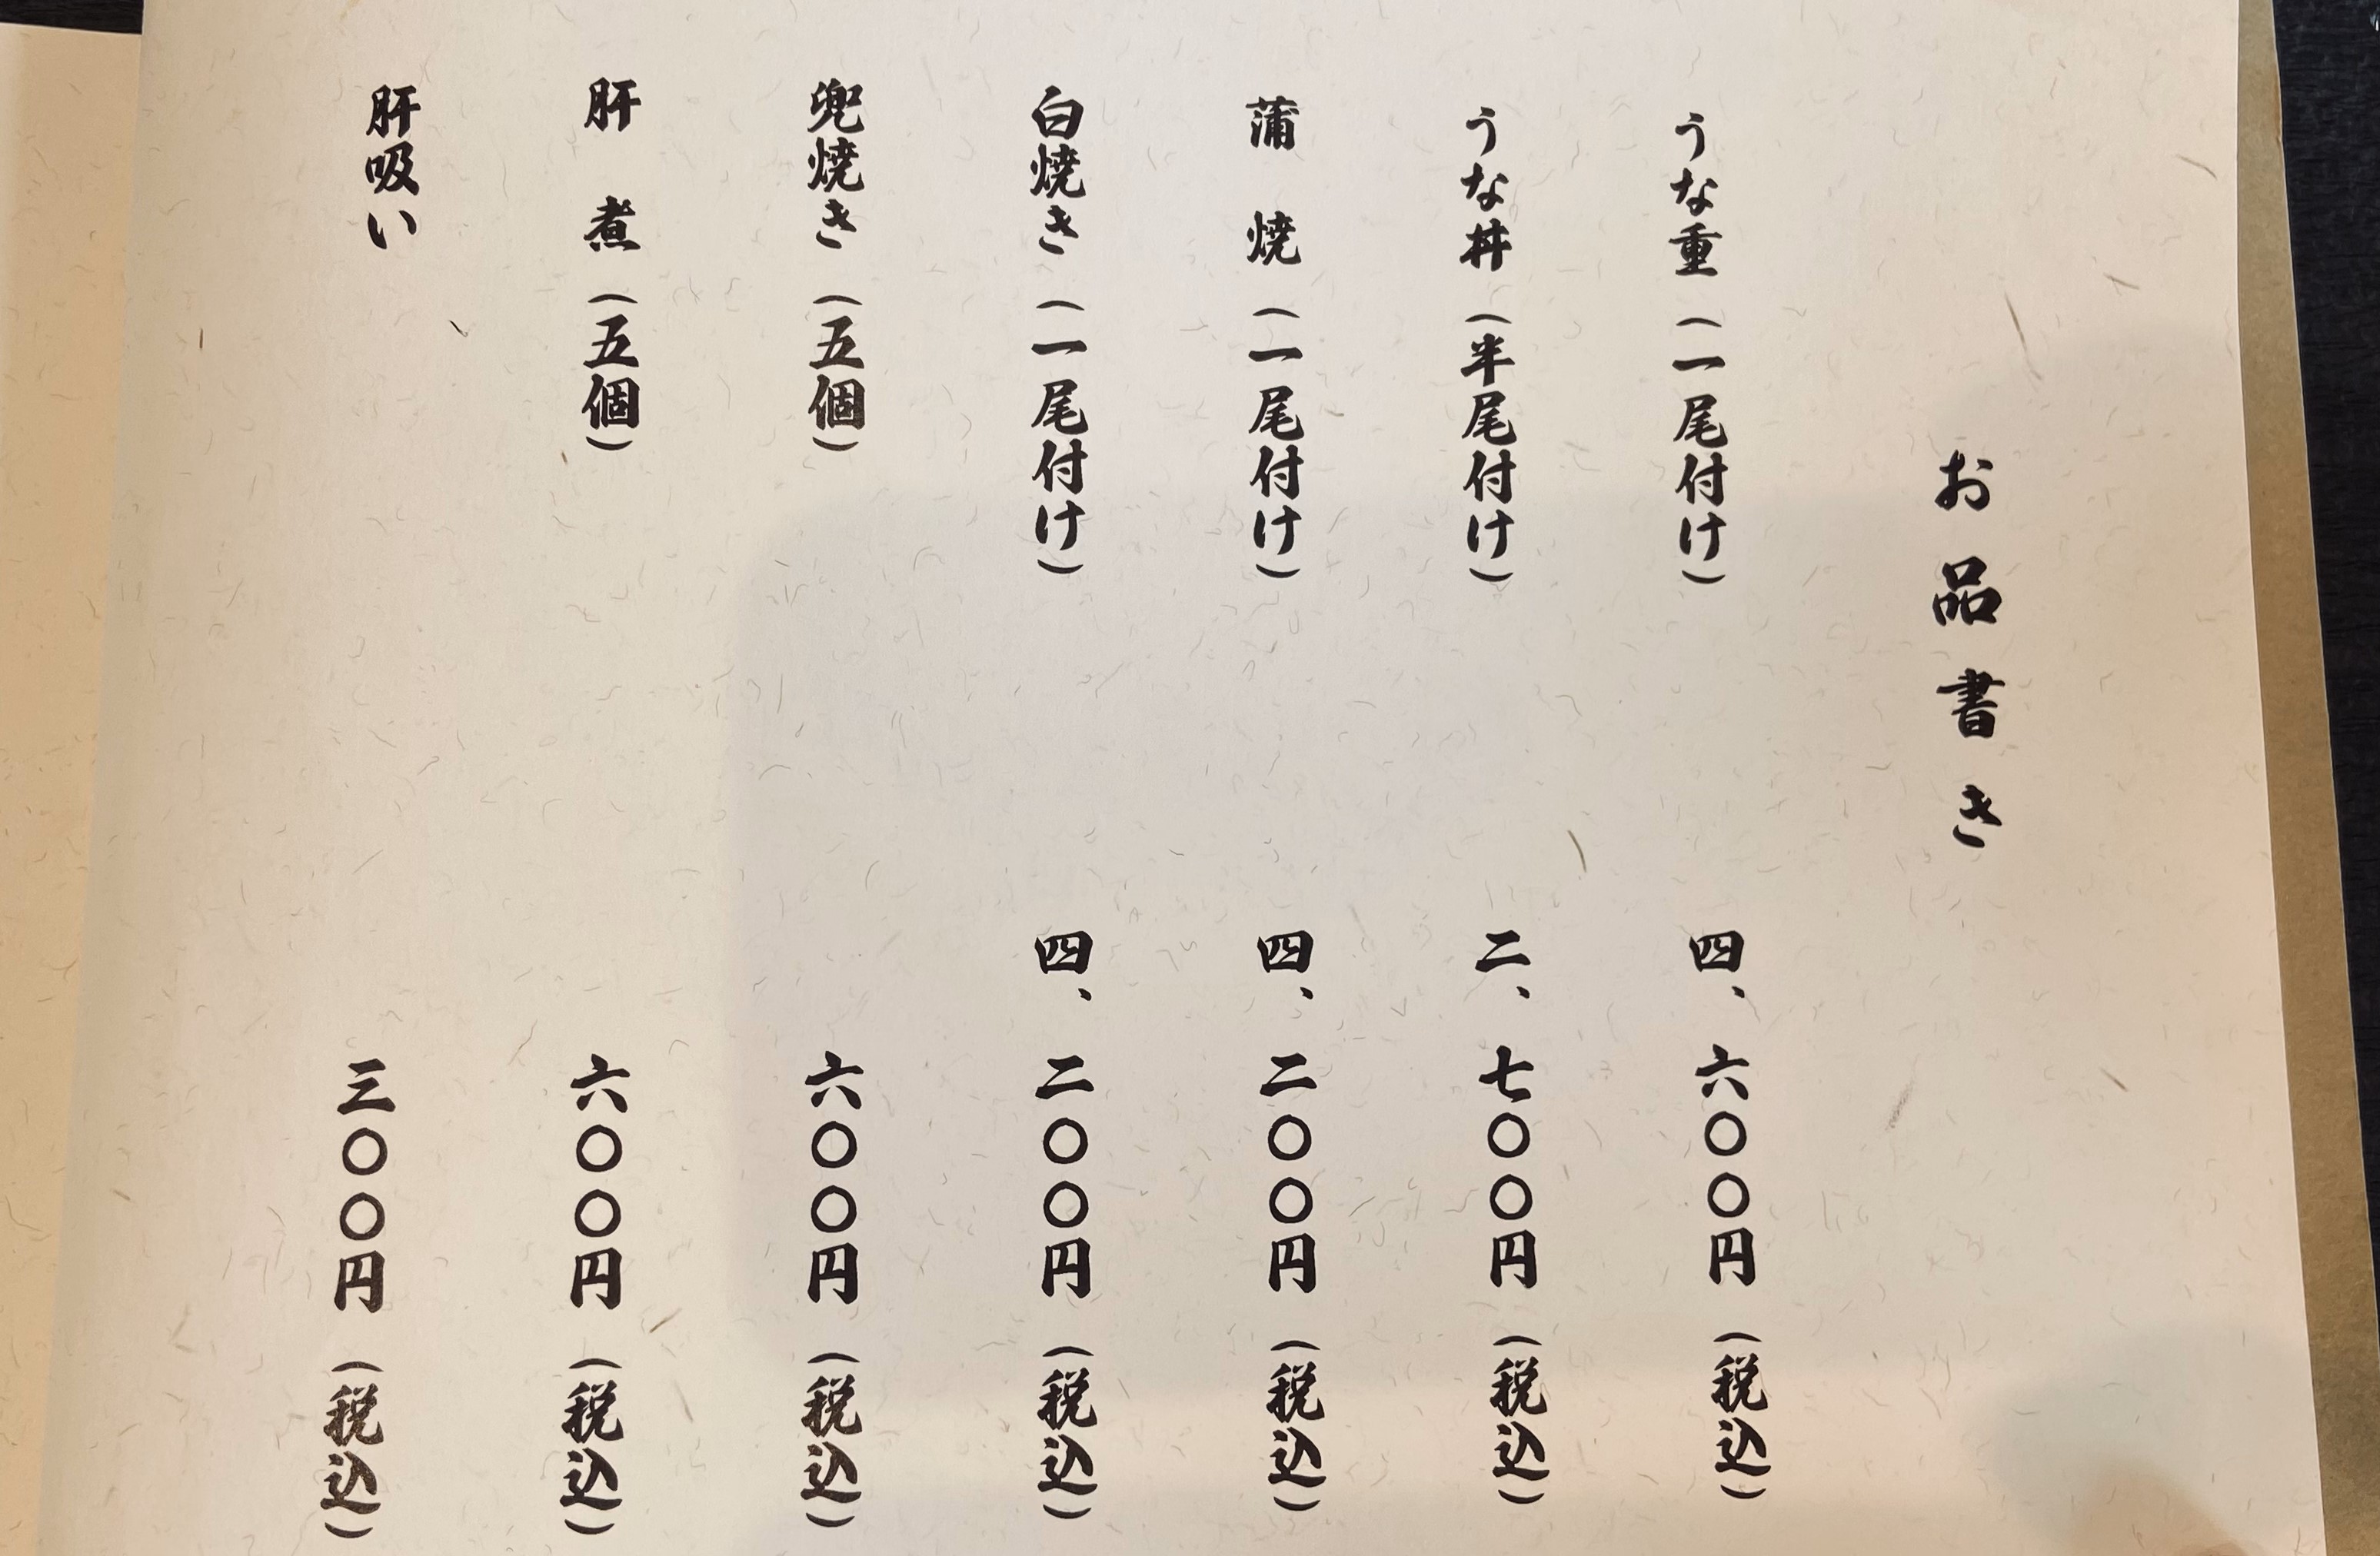 お品書き
うな重（一尾付け） 四、六〇〇円（税込）
うな丼（半尾付け） 二、七〇〇円（税込）
蒲 焼（一尾付け） 四、二〇〇円（税込）
白焼き（一尾付け） 四、二〇〇円（税込）
兜焼き（五個） 六〇〇円（税込）
肝 煮（五個） 六〇〇円（税込）
肝吸い 三〇〇円（税込）